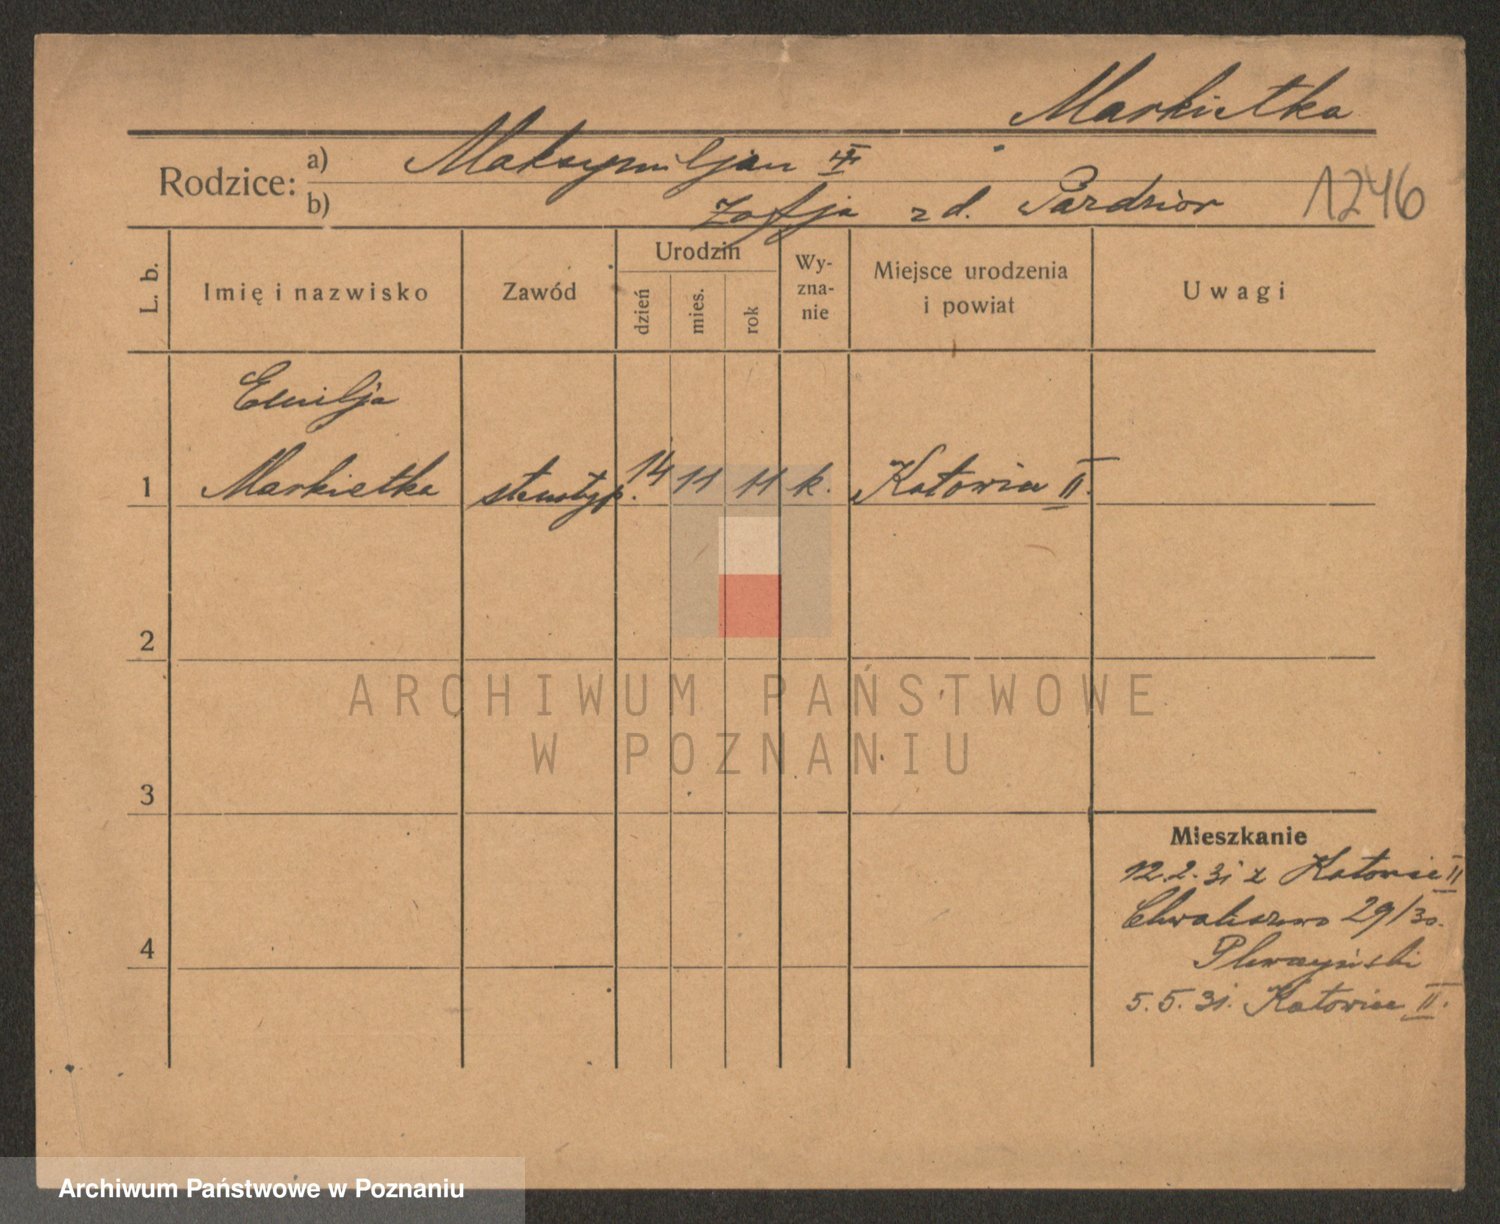 Markietka
Rodzice: a) Maksymiljan
b) Zofja z d. Pardzior
1246
L. b.
Imię i nazwisko
Zawód
Urodzin
dzień
mies.
rok
Wy-
zna-
nie
Miejsce urodzenia
i powiat
Uwagi
Emilja
1 Markietka stenotyp. 14 11 11 k. Katowice II.
2
ARCHIWUM PAŃSTWOWE
W POZNANIU
3
Mieszkanie
12.2.31 z Katowic II
Chwaliszewo 29/30.
4
5.5.31. Katowice II.
Archiwum Państwowe w Poznaniu